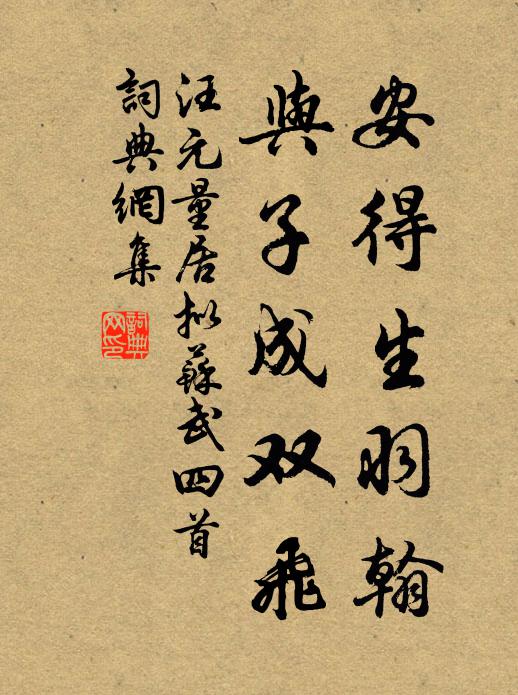 安得生羽翰
與子成双飛
汪元量居拟蘇武四首
詞典網集
詞典網印